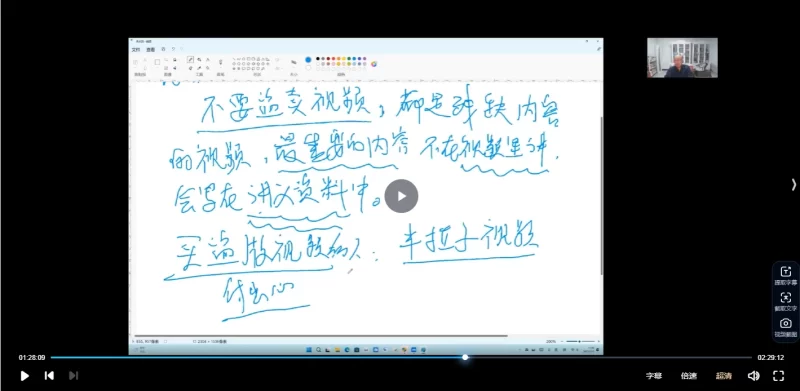 文件 查看
不要盗卖视频，都是残缺内容
的视频，最重要的内容 不在视频里讲，
会写在讲义资料中。
买盗版视频的人：半拉子视频
付出心
提取字幕
截取文字
视频截图
01:28:09
02:29:12
字幕 倍速 超清